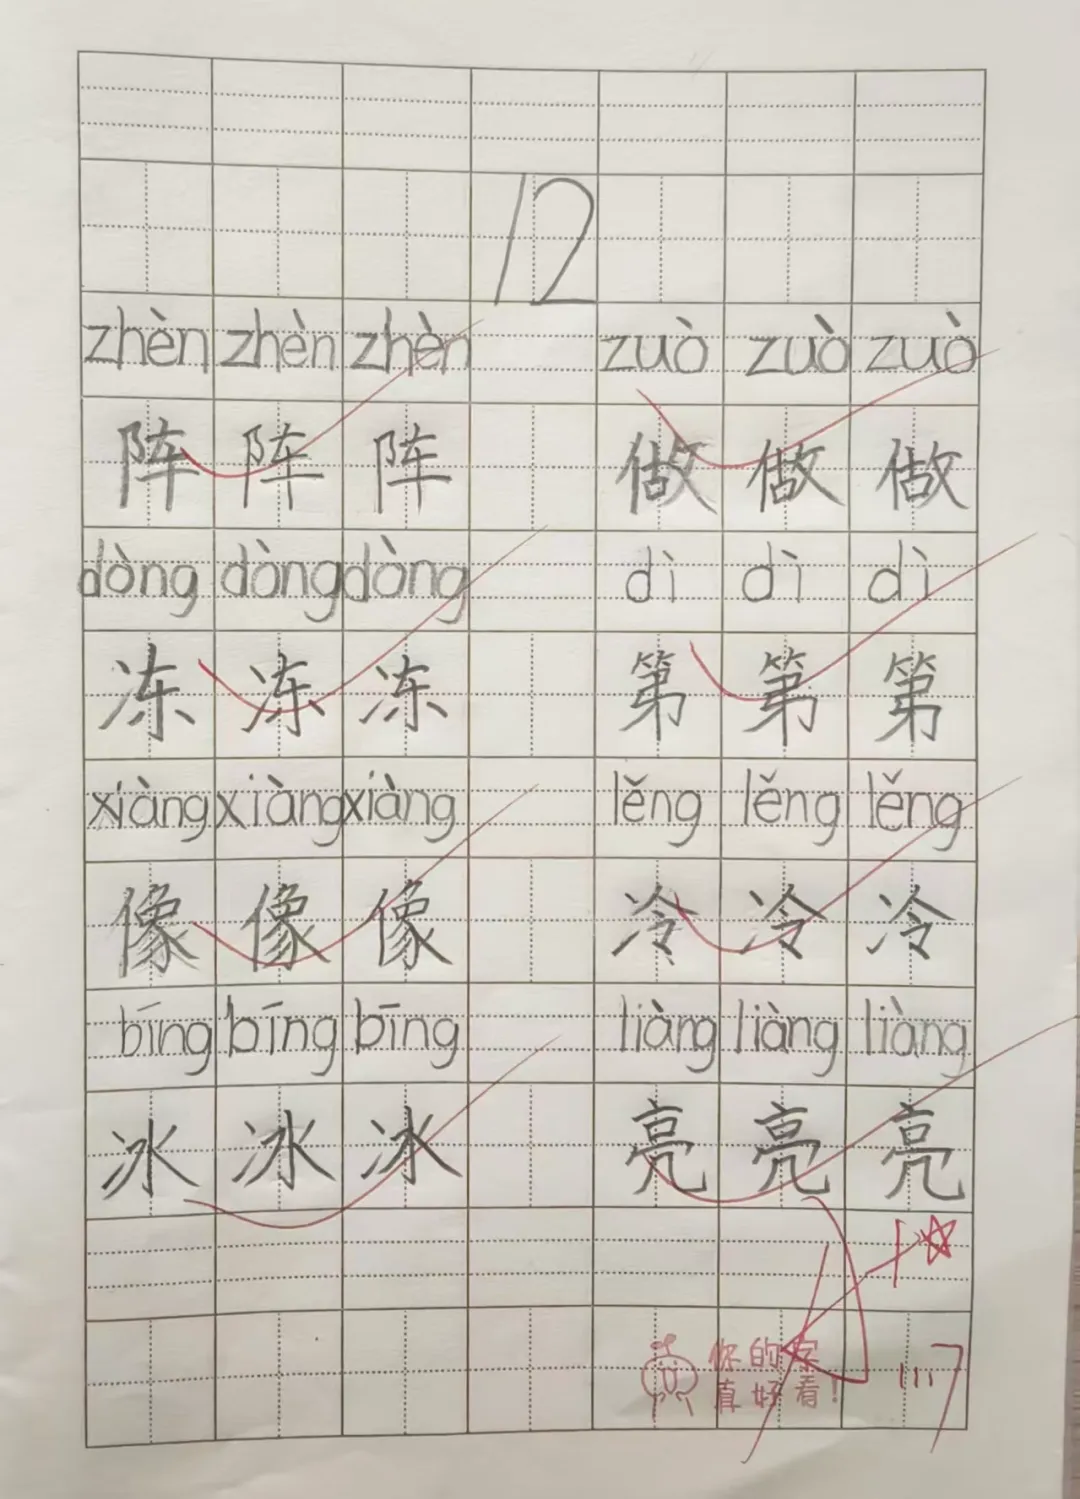 12
zhèn zhèn zhèn zuò zuò zuò
阵 阵 阵 做 做 做
dòng dòng dòng dì dì dì
冻 冻 冻 第 第 第
xiàng xiàng xiàng lěng lěng lěng
像 像 像 冷 冷 冷
bīng bīng bīng liàng liàng liàng
冰 冰 冰 亮 亮 亮
你的字
真好看!